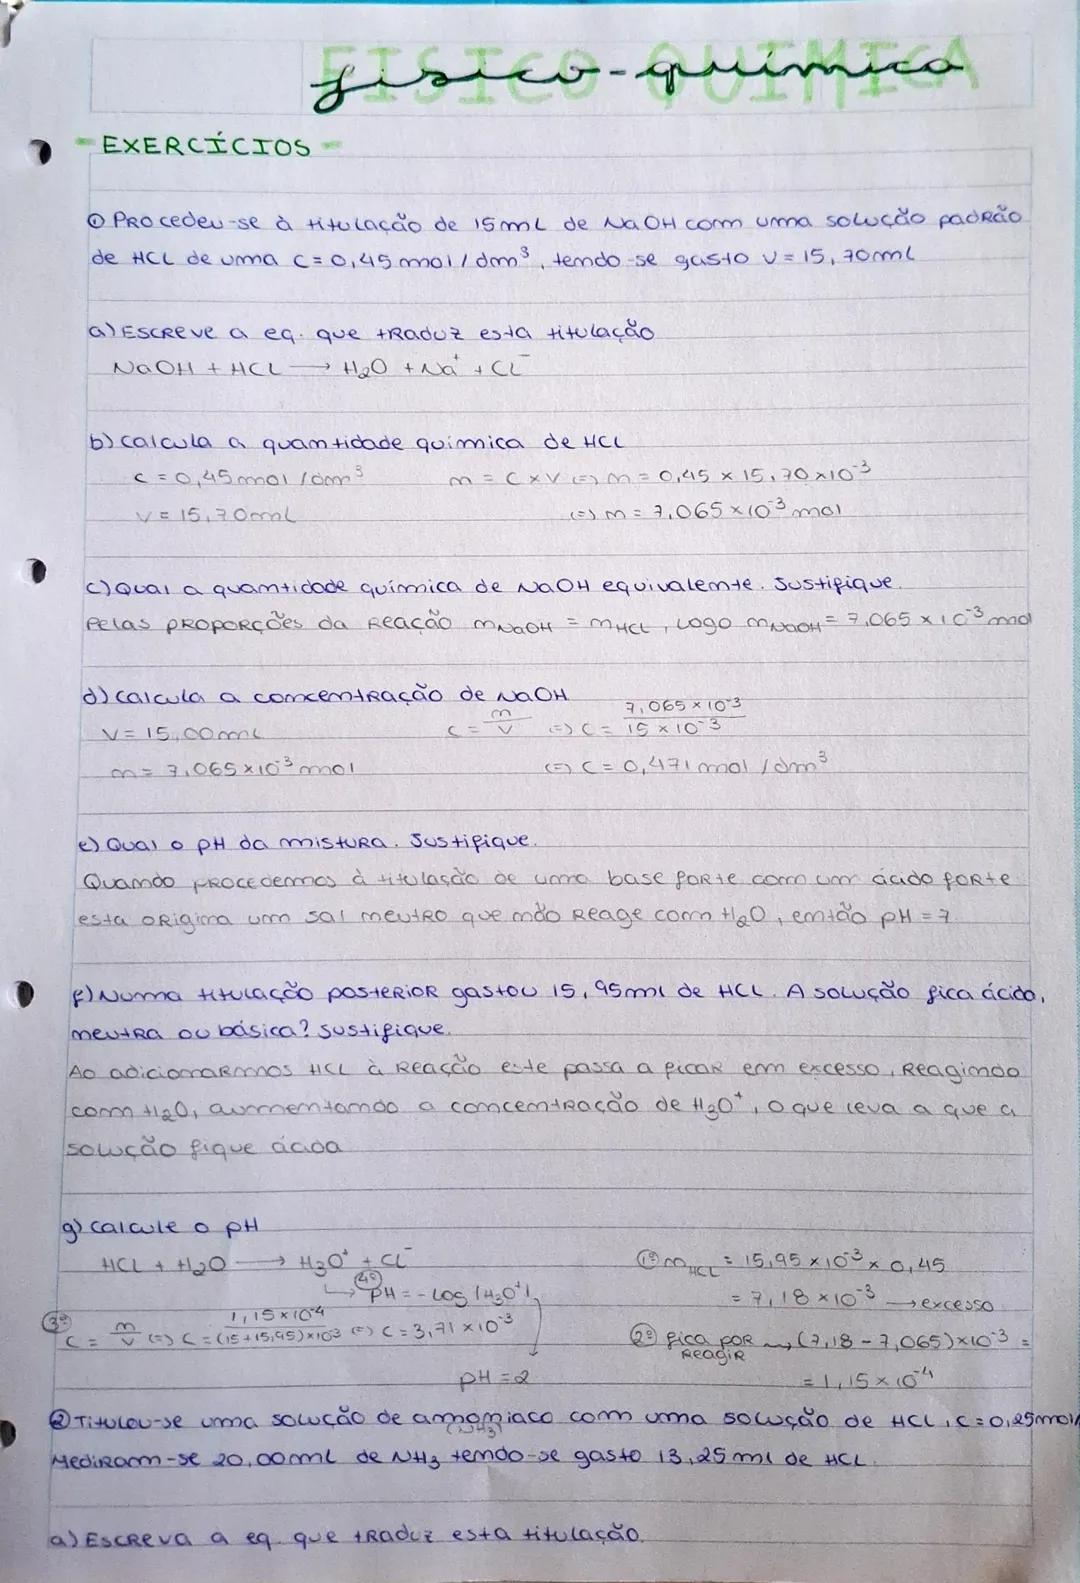 FISICO QUIMICA
fisico-química
- EXERCÍCIOS -
① Procedeu-se à titulação de 15mL de NaOH com uma solução padrão
de HCL de uma C = 0,45 mol/dm³, tendo-se gasto V = 15,70mL
a) Escreve a eq. que traduz esta titulação
NaOH + HCL → H₂O + Na⁺ + CL⁻
b) calcula a quantidade química de HCL
C = 0,45 mol/dm³ n = C × V (=) n = 0,45 × 15,70 × 10⁻³
V = 15,70mL (=) n = 7,065 × 10⁻³ mol
c) Qual a quantidade química de NaOH equivalente. Justifique.
Pelas proporções da reação nNaOH = nHCL, logo nNaOH = 7,065 × 10⁻³ mol
d) calcula a concentração de NaOH
V = 15,00mL C = n/V (=) C = 7,065 × 10⁻³/15 × 10⁻³
n = 7,065 × 10⁻³ mol (=) C = 0,471 mol/dm³
e) Qual o pH da mistura. Justifique.
Quando procedemos à titulação de uma base forte com um ácido forte
esta origina um sal neutro que não reage com H₂O, então pH = 7
f) Numa titulação posterior gastou 15,95ml de HCL. A solução fica ácida,
neutra ou básica? Justifique.
Ao adicionarmos HCL à reação este passa a ficar em excesso, reagindo
com H₂O, aumentando a concentração de H₃O⁺, o que leva a que a
solução fique ácida
g) calcule o pH
HCL + H₂O → H₃O⁺ + CL⁻ 1º nHCL = 15,95 × 10⁻³ × 0,45
4º pH = - Log |H₃O⁺| = 7,18 × 10⁻³ → excesso
3º C = n/V (=) C = 1,15 × 10⁻⁴/(15 + 15,95) × 10⁻³ (=) C = 3,71 × 10⁻³ 2º fica por reagir → (7,18 - 7,065) × 10⁻³ =
pH = 2 = 1,15 × 10⁻⁴
② Titulou-se uma solução de amoníaco com uma solução de HCL, C = 0,25mol/
(NH₃)
Mediram-se 20,00mL de NH₃ tendo-se gasto 13,25 ml de HCL.
a) Escreva a eq. que traduz esta titulação.